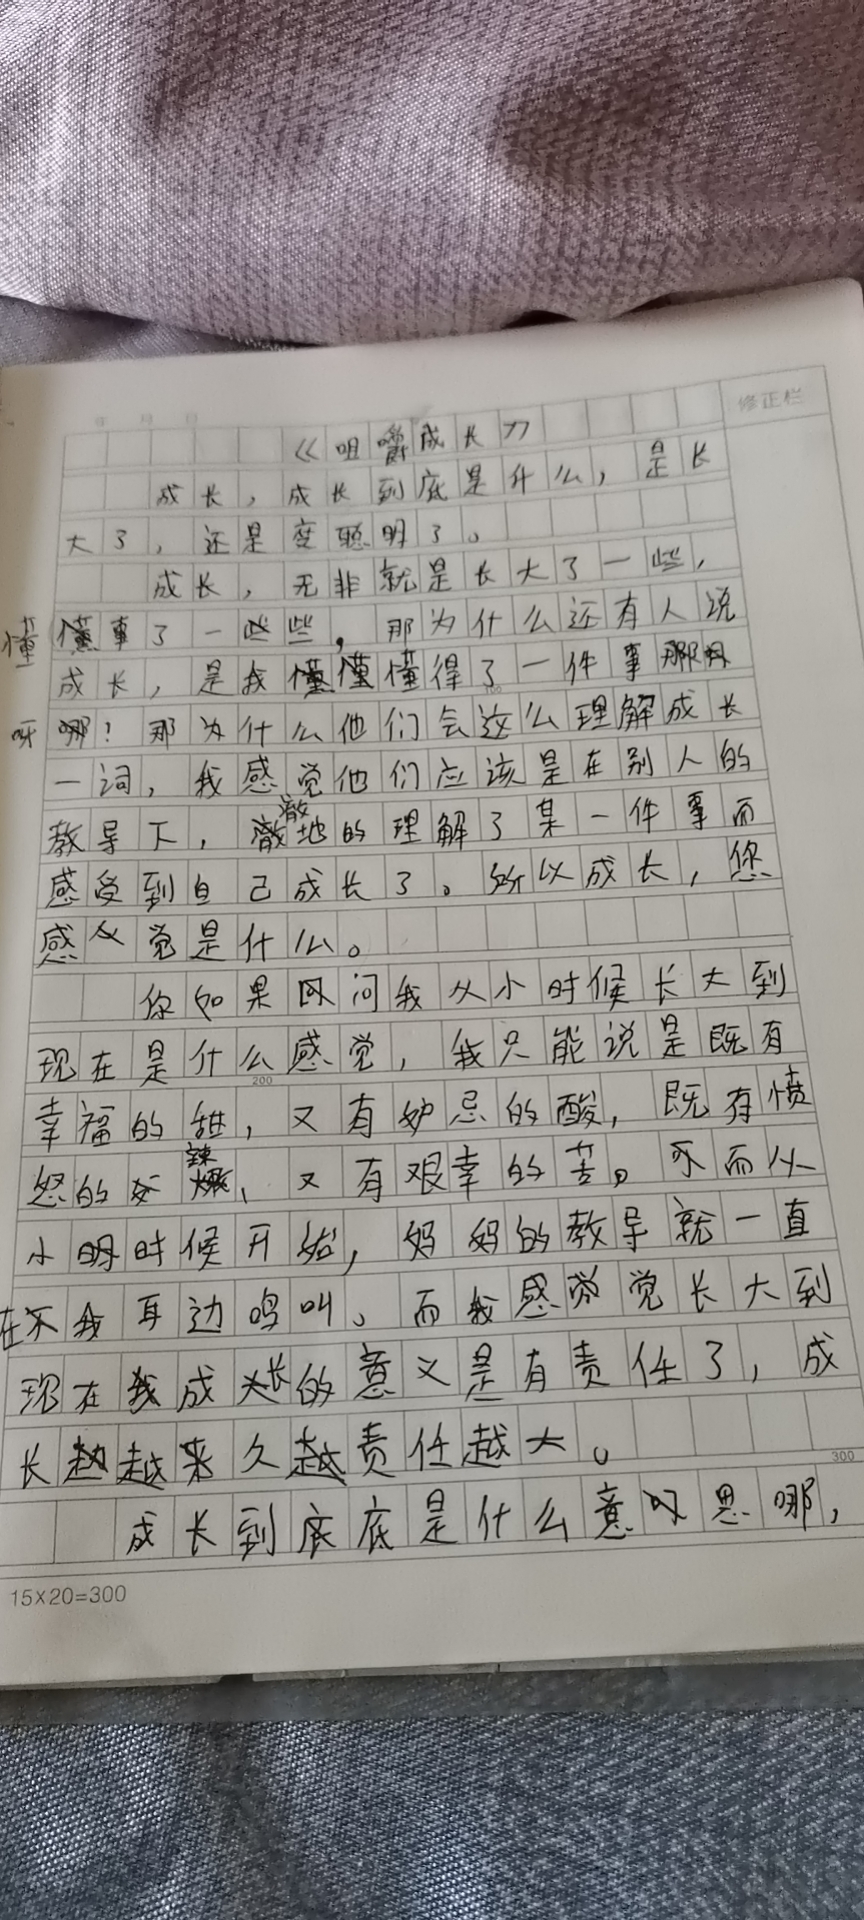 年 月 日
修正栏
《咀嚼成长》
成长，成长到底是什么，是长
大了，还是变聪明了。
成长，无非就是长大了一些，
懂事了一些些，那为什么还有人说
成长，是我懂得了一件事
呀！那为什么他们会这么理解成长
一词，我感觉他们应该是在别人的
教导下，澈地的理解了某一件事而
感受到自己成长了。所以成长，您
感觉是什么。
你如果问我从小时候长大到
现在是什么感觉，我只能说是既有
200
幸福的甜，又有妒忌的酸，既有愤
怒的辣，又有艰幸的苦。而从
小时候开始，妈妈的教导就一直
在我耳边鸣叫。而我感觉长大到
现在我成长的意义是有责任了，成
长越来久越责任越大。
300
成长到底是什么意思哪，
15×20=300